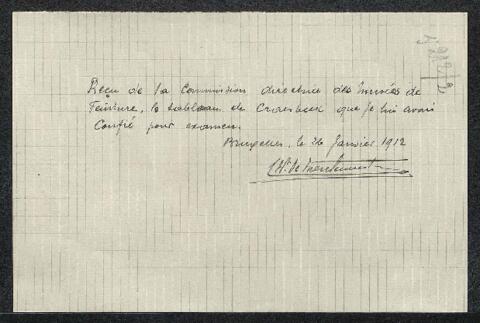 Reçu de la Commission directrice des Musées de
Peinture, le tableau de Craesbeek que je lui avais
Confié pour examen.
Bruxelles, le 26 Janvier 1912